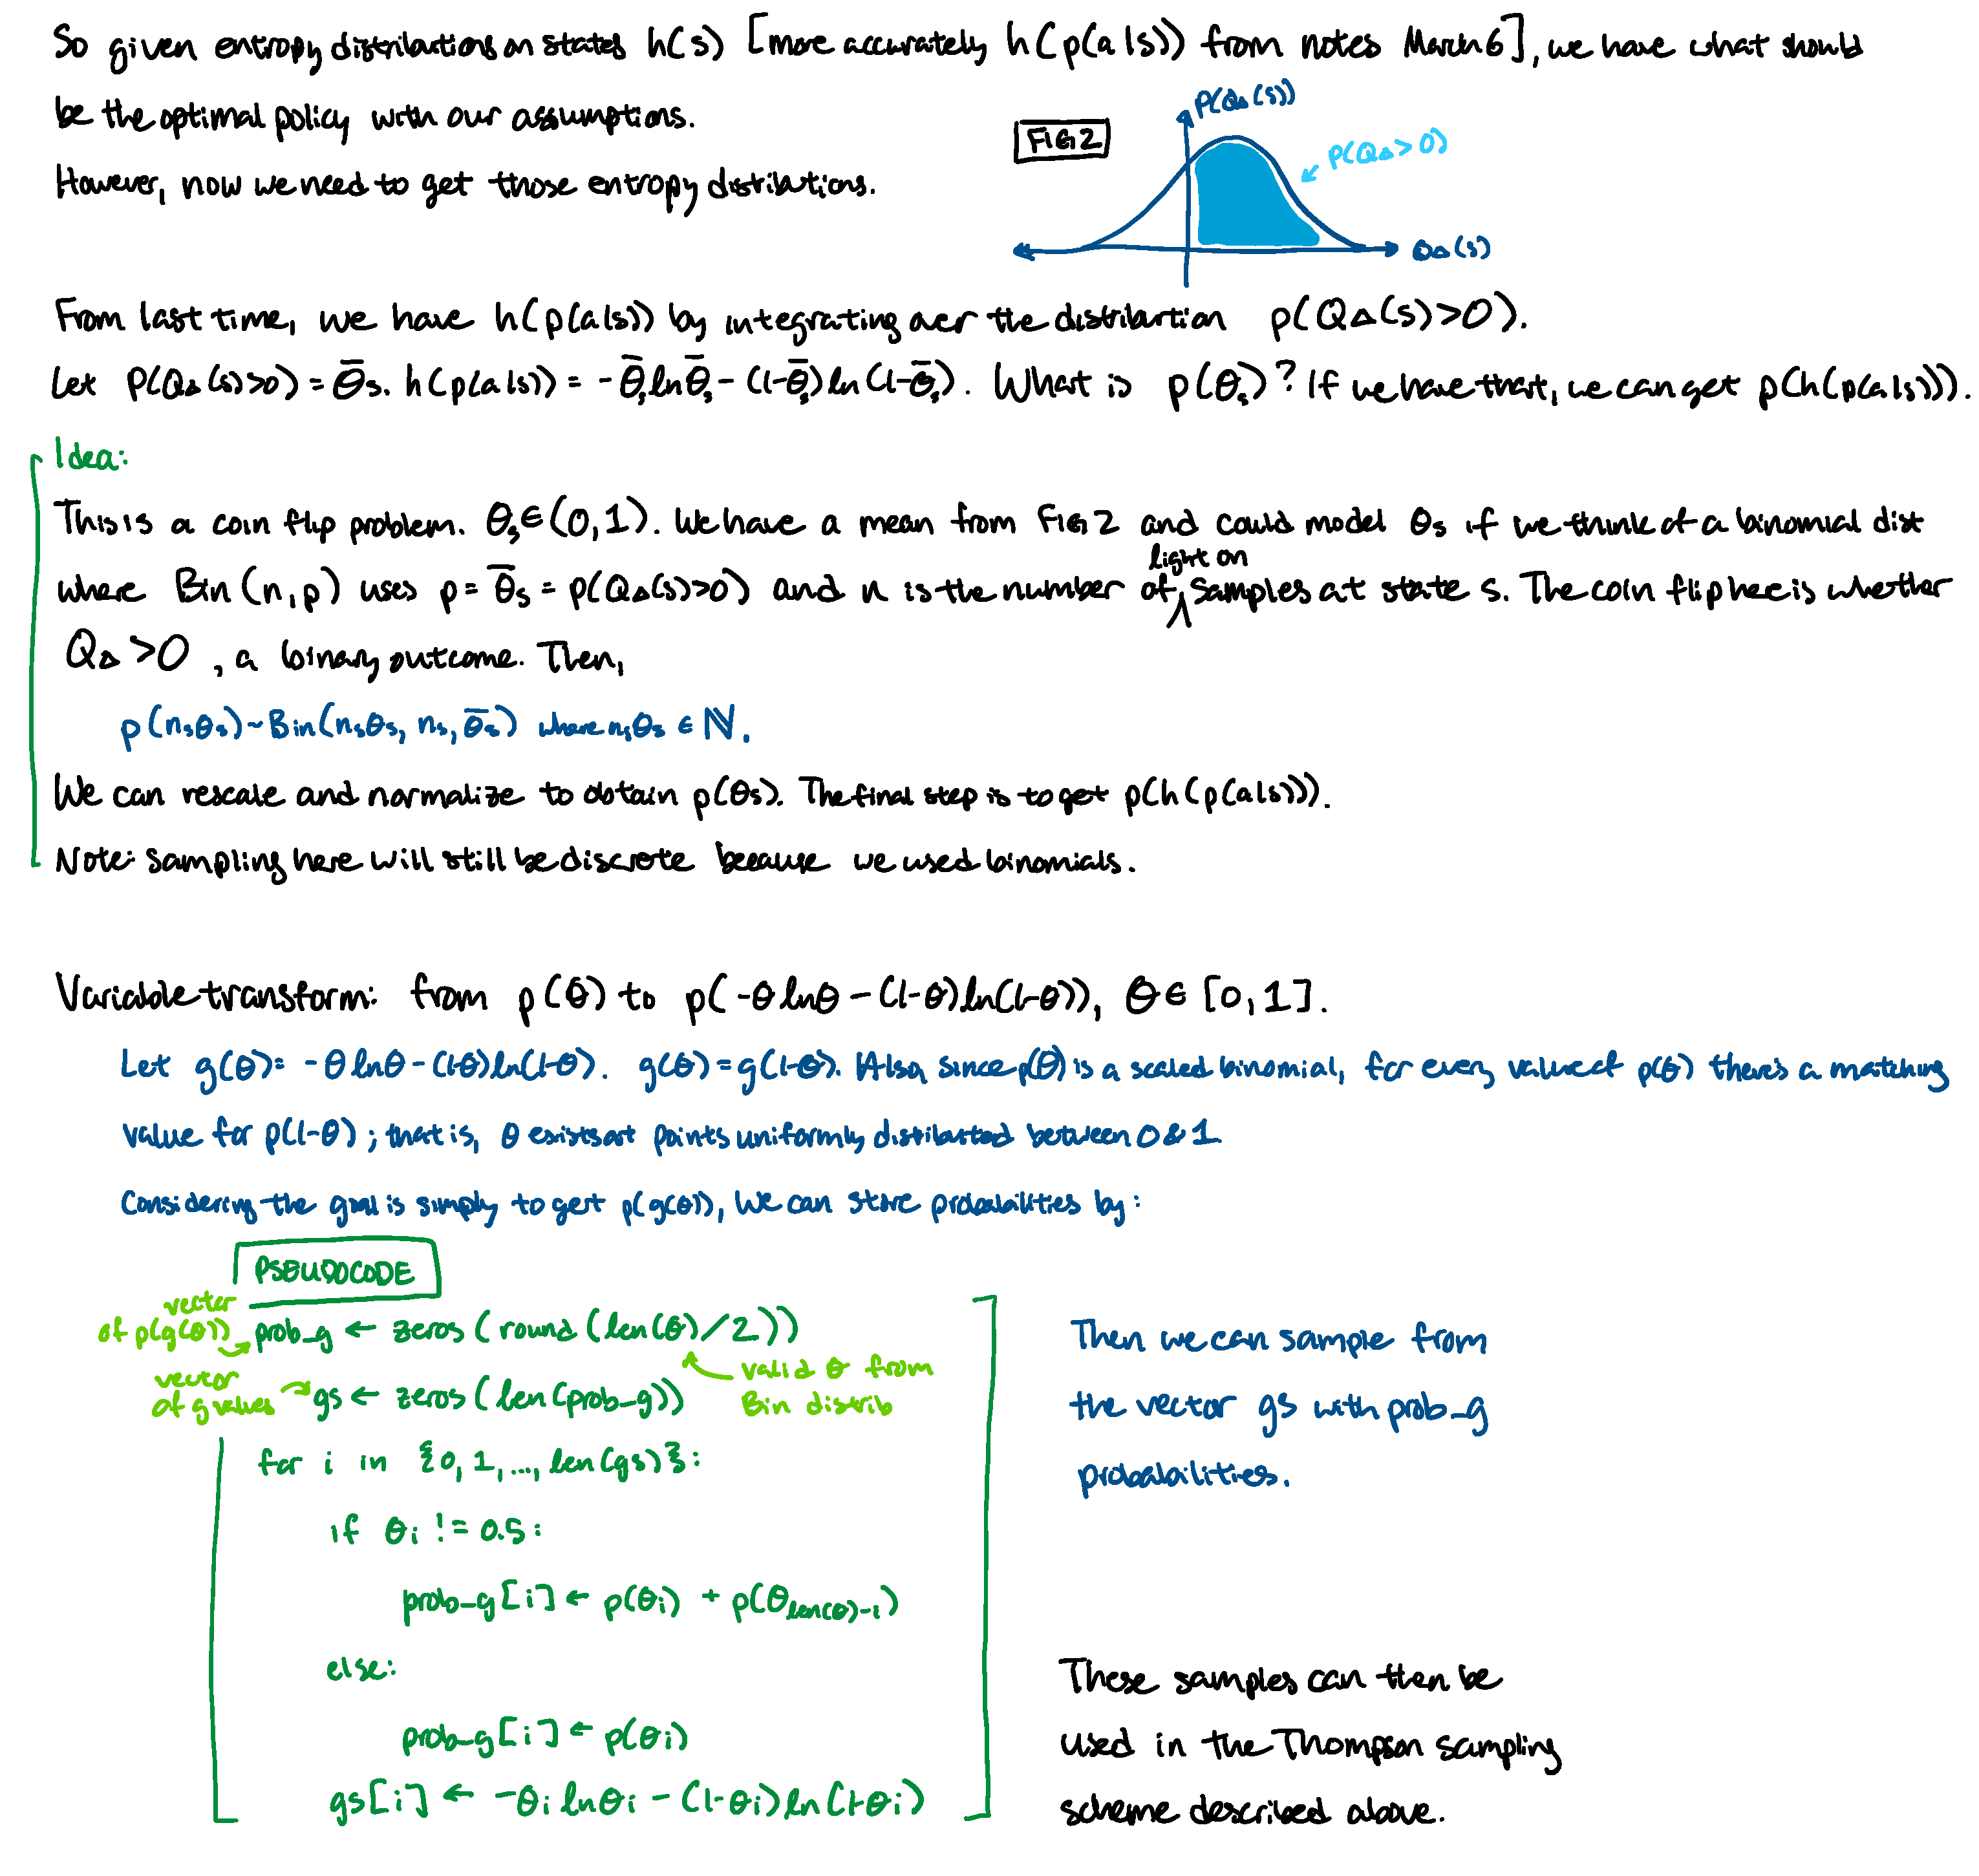 So given entropy distributions on states h(s) [more accurately h(p(a|s)) from notes March 6], we have what should
be the optimal policy with our assumptions.
However, now we need to get those entropy distributions.
FIG 2
P(Q∆(s))
P(Q∆>0)
Q∆(s)
From last time, we have h(p(a|s)) by integrating over the distribution p(Q∆(s)>0).
Let P(Q∆(s)>0) = θ̄s. h(p(a|s)) = -θ̄s ln θ̄s - (1-θ̄s) ln(1-θ̄s). What is p(θs)? If we have that, we can get p(h(p(a|s))).
Idea:
This is a coin flip problem. θs ∈ (0,1). We have a mean from FIG 2 and could model θs if we think of a binomial dist
where Bin(n,p) uses p = θ̄s = p(Q∆(s)>0) and n is the number of light on samples at state s. The coin flip here is whether
Q∆ > 0, a binary outcome. Then,
p(nsθs) ~ Bin(nsθs, ns, θ̄s) where nsθs ∈ ℕ.
We can rescale and normalize to obtain p(θs). The final step is to get p(h(p(a|s))).
Note: sampling here will still be discrete because we used binomials.
Variable transform: from p(θ) to p(-θ ln θ - (1-θ) ln(1-θ)), θ ∈ [0,1].
Let g(θ) = -θ ln θ - (1-θ) ln(1-θ). g(θ) = g(1-θ). Also, since p(θ) is a scaled binomial, for every value of p(θ) there's a matching
value for p(1-θ); that is, θ exists at points uniformly distributed between 0 & 1
Considering the goal is simply to get p(g(θ)), we can store probabilities by:
PSEUDOCODE
vector of p(g(θ))
prob_g ← zeros(round(len(θ)/2))
valid θ from Bin distrib
vector of g values
gs ← zeros(len(prob_g))
for i in {0, 1, ..., len(gs)}:
if θi != 0.5:
prob_g[i] ← p(θi) + p(θlen(θ)-i)
else:
prob_g[i] ← p(θi)
gs[i] ← -θi ln θi - (1-θi) ln(1-θi)
Then we can sample from
the vector gs with prob_g
probabilities.
These samples can then be
used in the Thompson sampling
scheme described above.